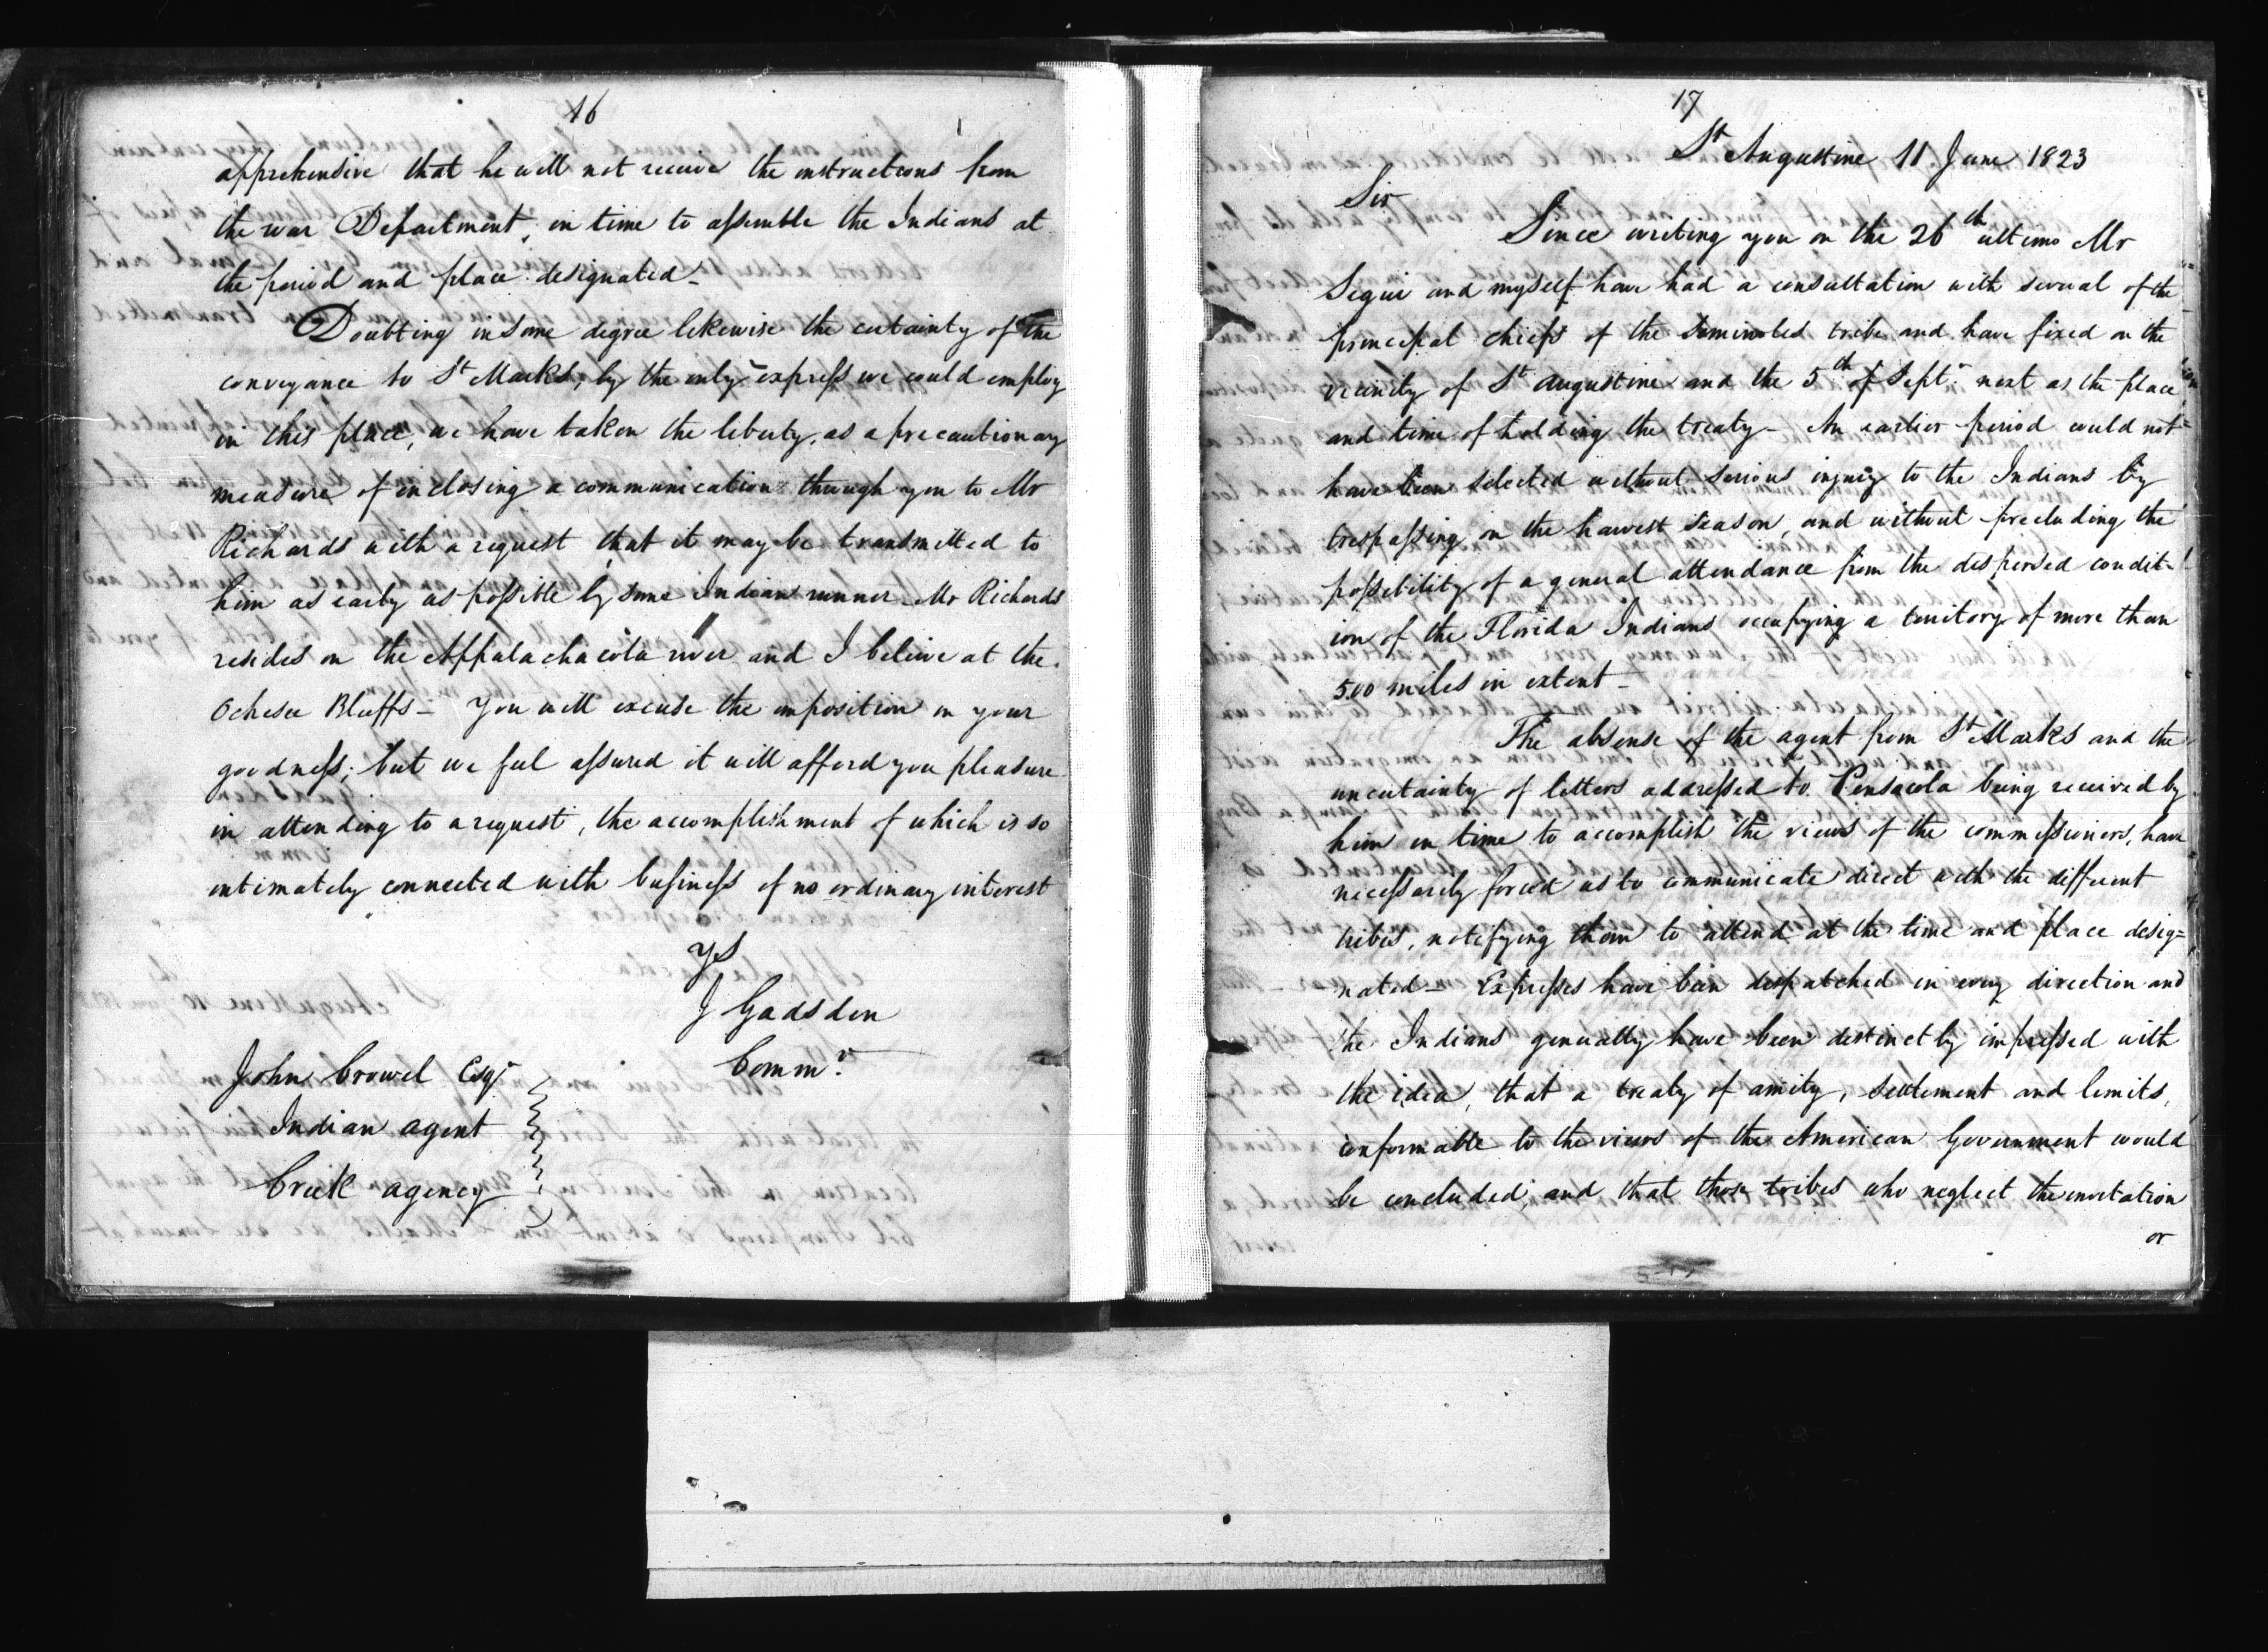 16
apprehensive that he will not receive the instructions from
the war Department, in time to assemble the Indians at
the period and place designated-
Doubting in some degree likewise the certainty of the
conveyance to St Marks, by the only express we could employ
in this place, we have taken the liberty, as a precautionary
measure of inclosing a communication through you to Mr
Richards with a request, that it may be transmitted to
him as early as possible by some Indian runner - Mr Richards
resides on the Appalachacola river and I believe at the
Ochesee Bluffs - You will excuse the imposition on your
goodness; but we feel assured it will afford you pleasure
in attending to a request, the accomplishment of which is so
intimately connected with business of no ordinary interest
Ys
J Gadsden
Commr.
John Crowel Esqr
Indian agent
Creek agency
17
St Augustine 11 June 1823
Sir
Since writing you on the 26th ultimo Mr
Segui and myself have had a consultation with several of the
principal chiefs of the Seminoles tribe and have fixed on the
vicinity of St augustine and the 5th of Septr. next as the place
and time of holding the treaty - An earlier period could not
have been selected without serious injury to the Indians by
trespassing on the harvest season, and without precluding the
possibility of a general attendance from the dispersed condit-
ion of the Florida Indians occupying a territory of more than
500 miles in extent -
The absense of the agent from St Marks and the
uncertainty of letters addressed to Pensacola being received by
him in time to accomplish the views of the commissioners, have
necessarily forced us to communicate direct with the different
tribes, notifying them to attend at the time and place desig=
nated - Expresses have been despatched in every direction and
the Indians generally have been distinctly impressed with
the idea, that a treaty of amity, settlement and limits,
conformable to the views of the American Government would
be concluded; and that those tribes who neglect the invitation
or